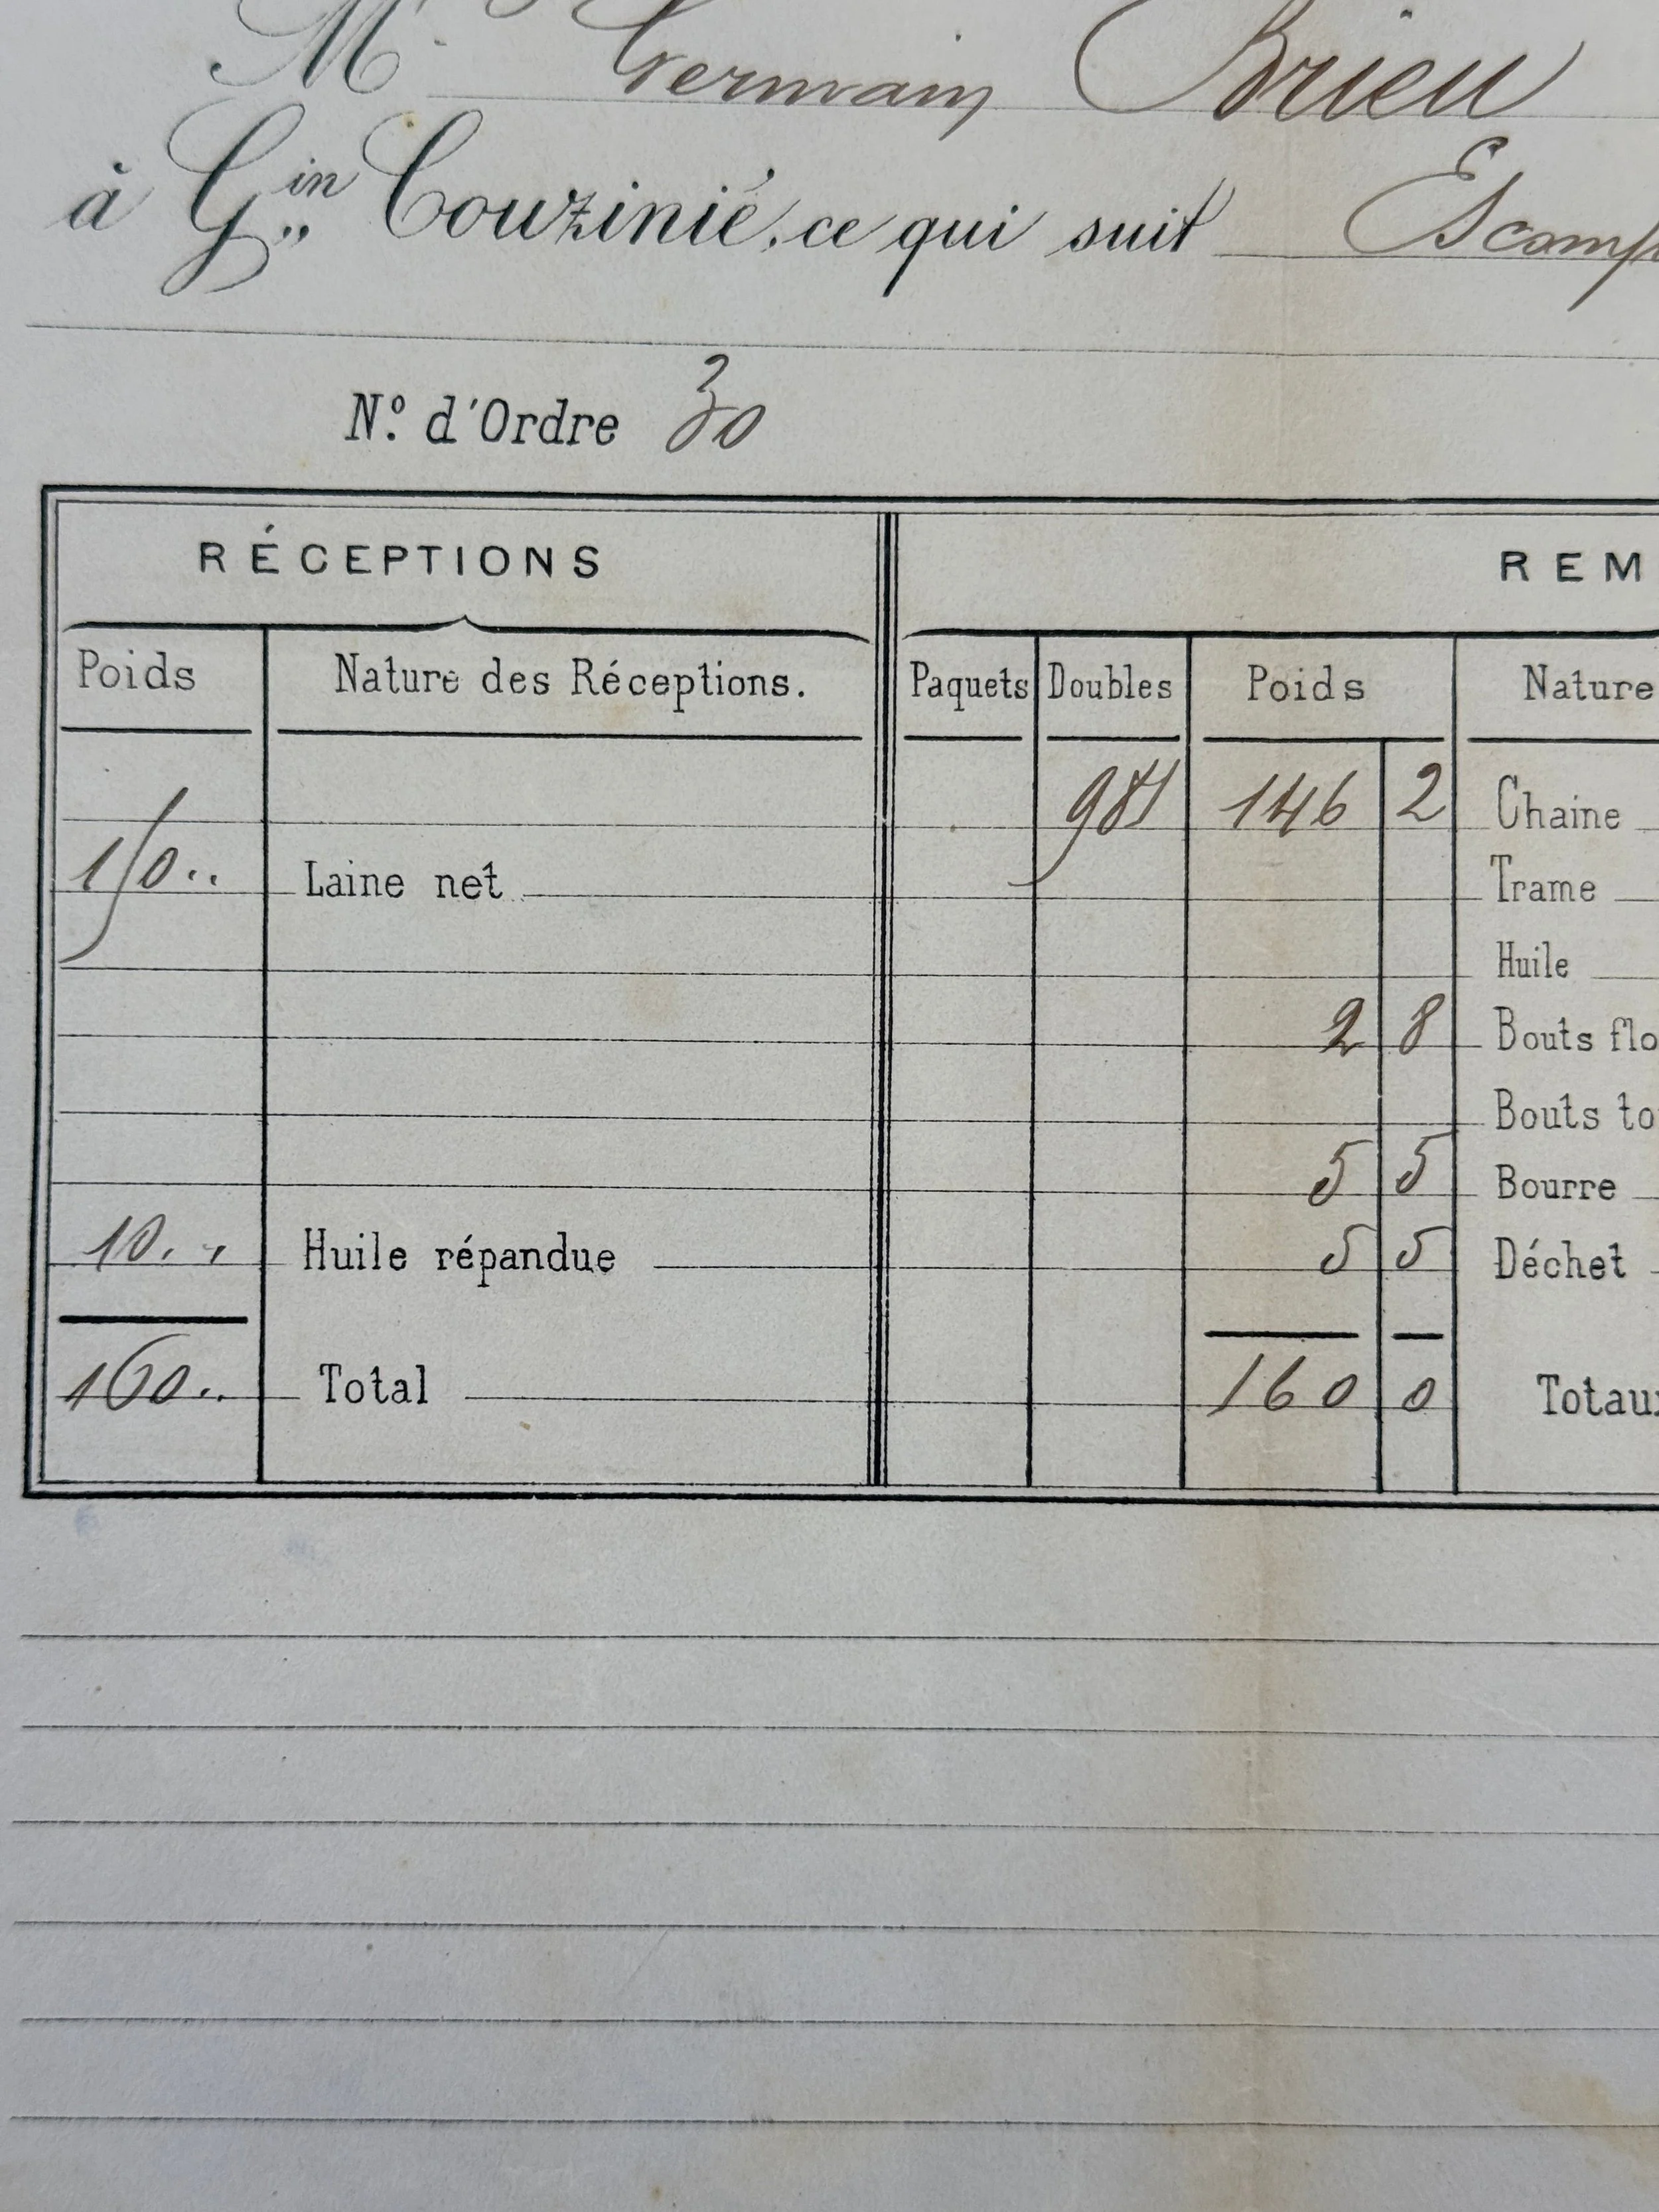 Mr Germain Brieu
à Gin Couzinié, ce qui suit
N.º d'Ordre 30
RÉCEPTIONS REM
Poids Nature des Réceptions. Paquets Doubles Poids Nature
146 2 Chaine
150.. Laine net Trame
Huile
2 8 Bouts flo
Bouts to
5 5 Bourre
10.. Huile répandue 5 5 Déchet
160.. Total 160 0 Totaux